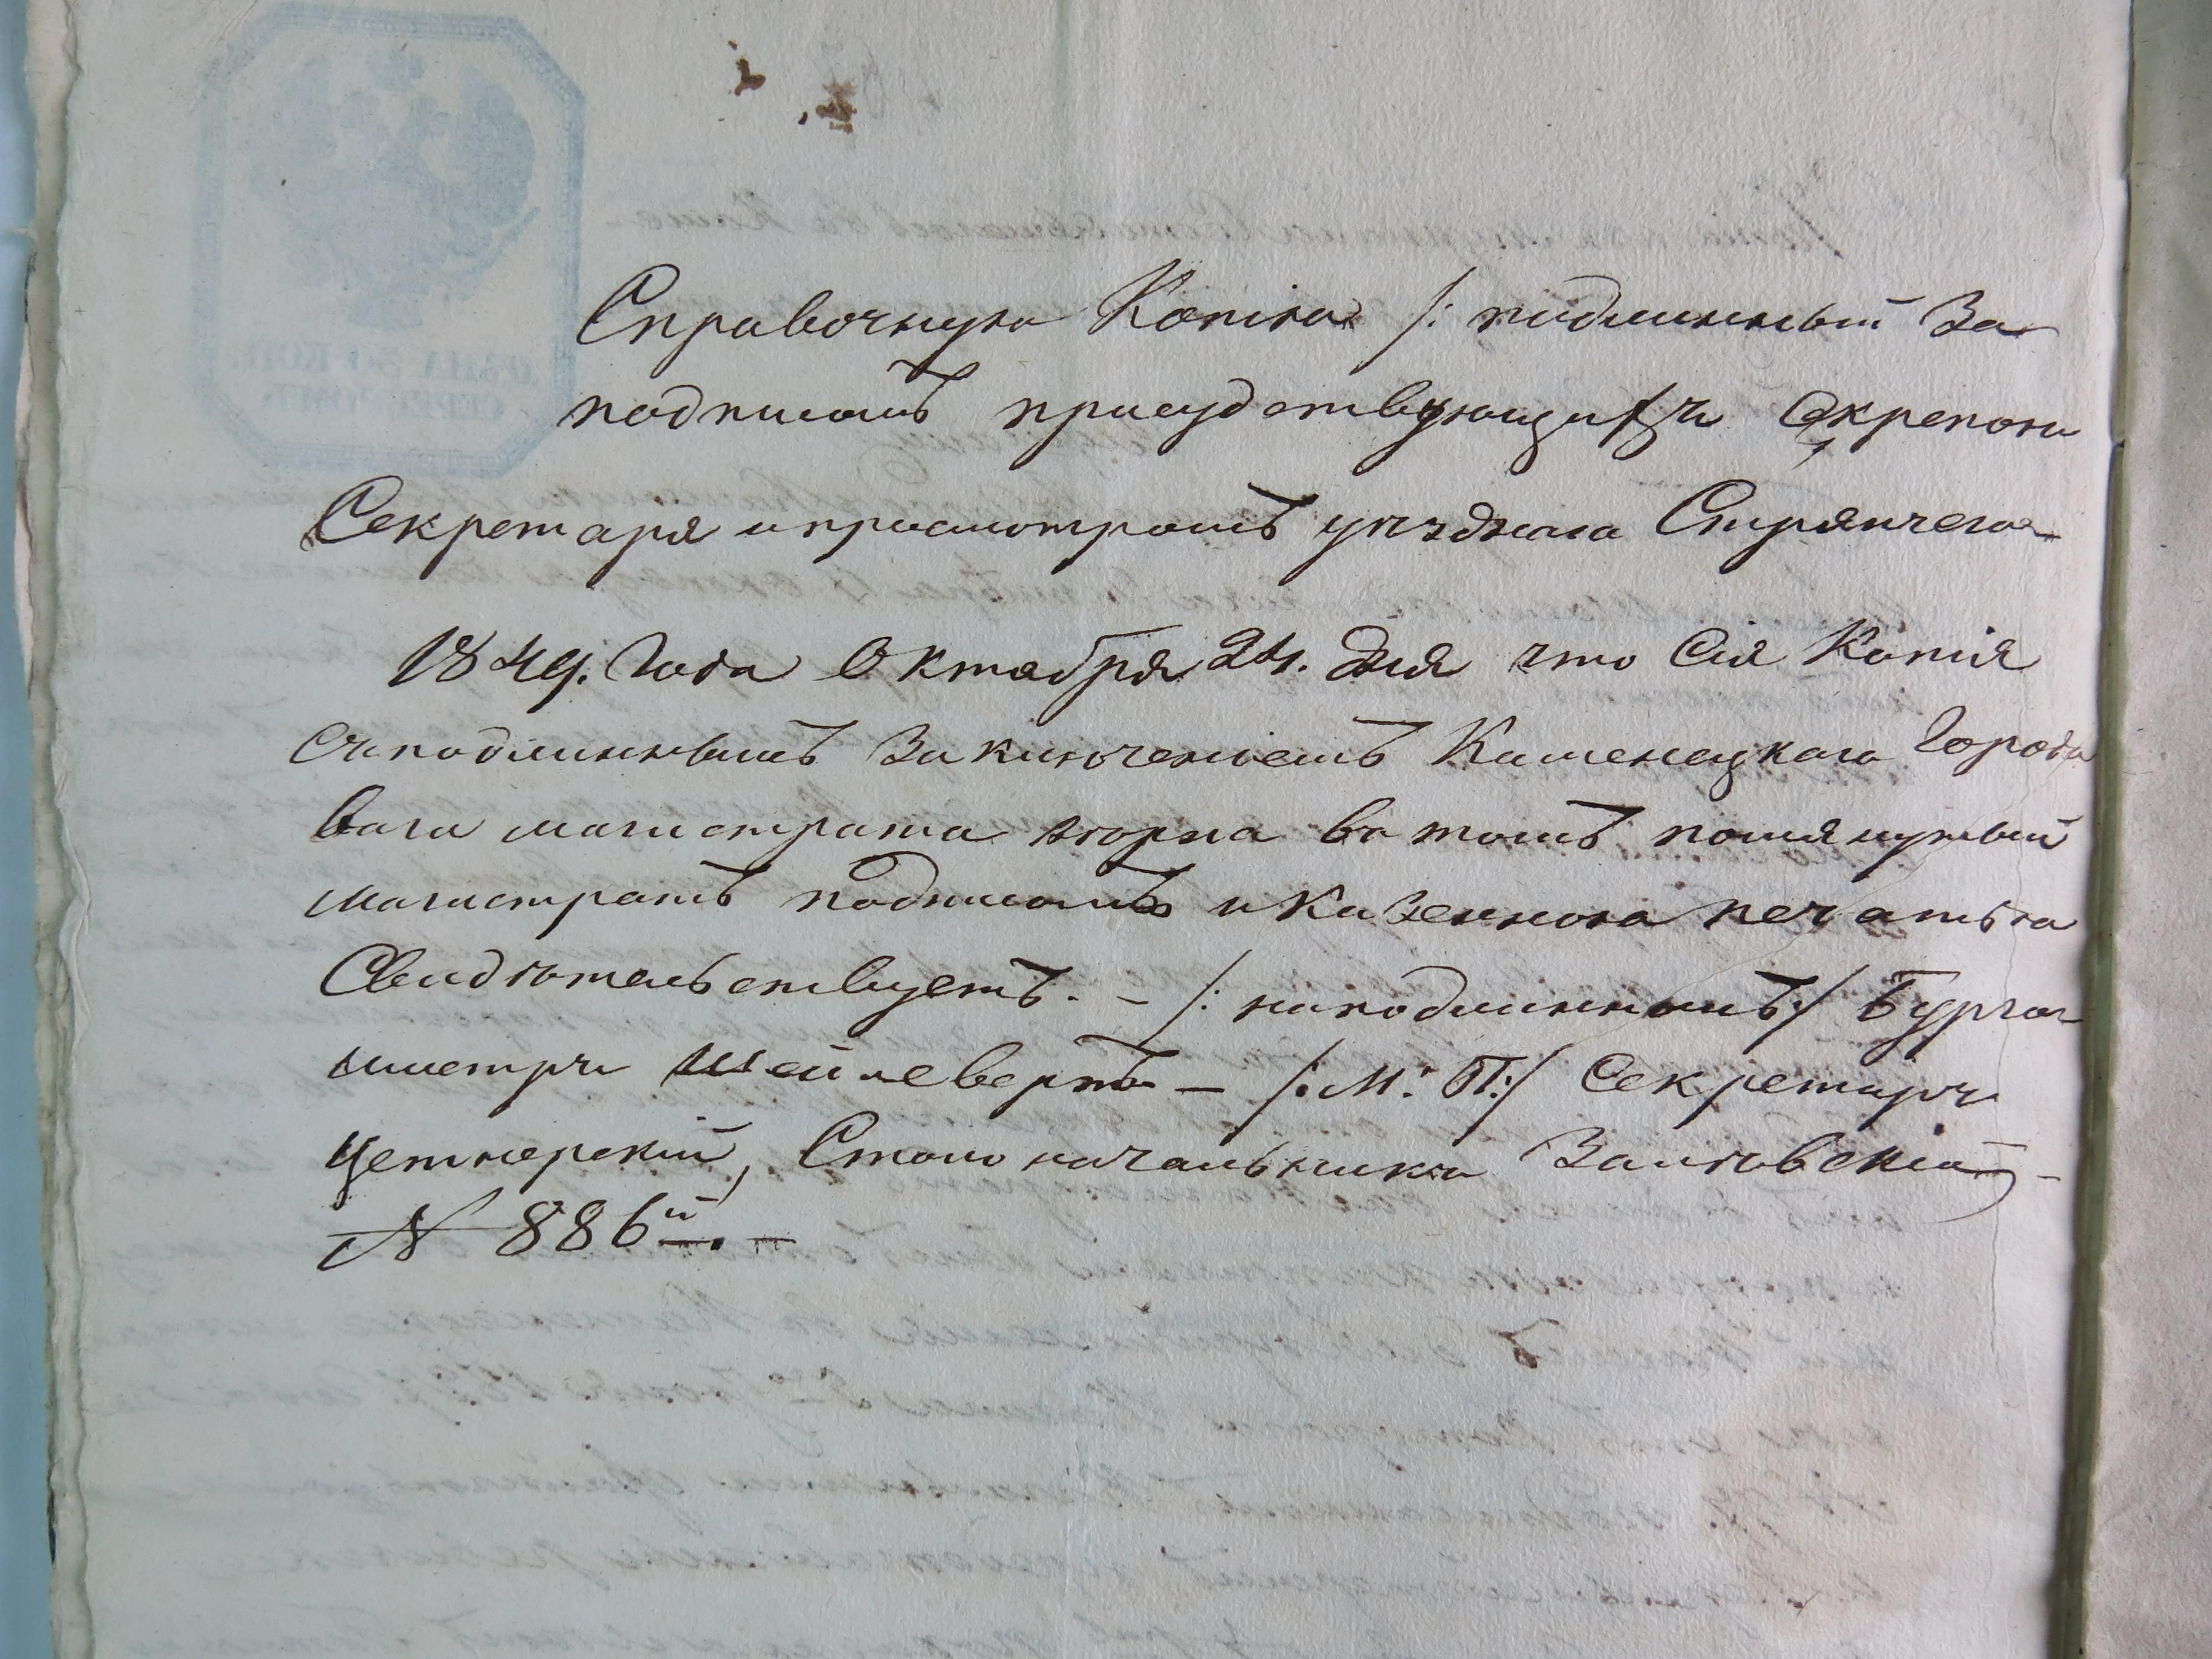 Справочную Копію /: подлинный За
подписомъ присудствующихъ Скрепою
Секретаря и присмотромъ уѣзднаго Стряпчего
1849. Года Октября 24. Дня что Сія Копія
Съ подлиннымъ Заключеніемъ Каменецкаго Городо
ваго магистрата вѣрна въ томъ помянутый
магистратъ подписомъ и Казенною печатью
Свидѣтельствуетъ. - /: на подлинномъ:/ Бурго-
мистръ – /:М: П:/ Секретарь
Цетнерскій, Столоначальникъ
№ 886й. -